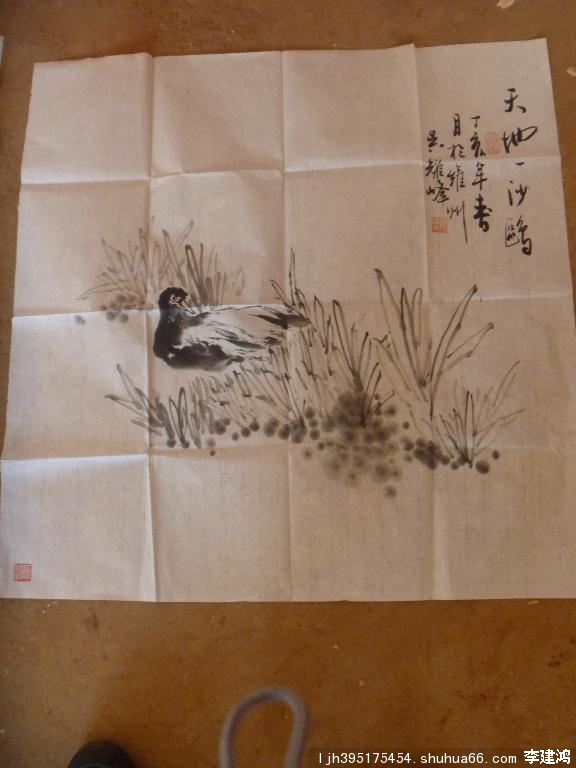 天地一沙鷗
丁亥年春
月於雍州
吴耀峰
ljh395175454.shuhua66.com 李建鸿